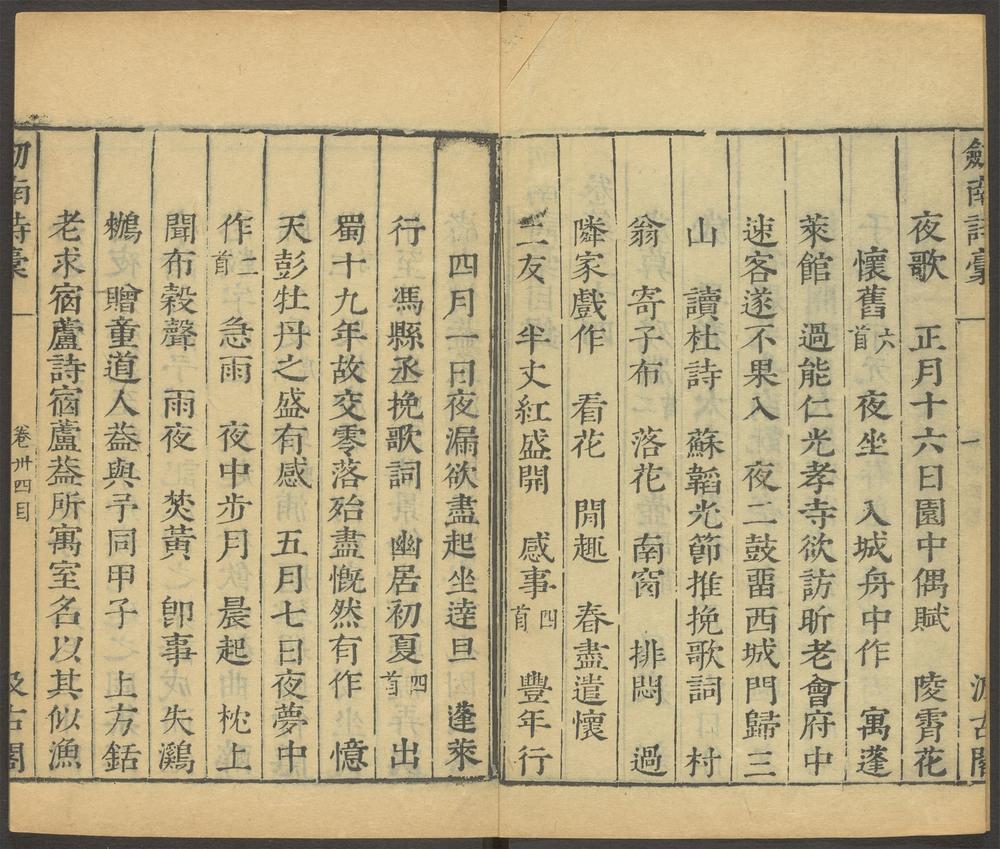 劒南詩稾 一 汲古閣
夜歌 正月十六日園中偶賦 陵霄花
懷舊六首 夜坐 入城舟中作 寓蓬
萊館 過能仁光孝寺欲訪昕老會府中
速客遂不果入 夜二鼓畱西城門歸三
山 讀杜詩 蘇韜光節推挽歌詞 村
翁 寄子布 落花 南窗 排悶 過
隣家戲作 看花 閒趣 春盡遣懷
二友 半丈紅盛開 感事四首 豐年行
四月一日夜漏欲盡起坐達旦 蓬萊
行 馮縣丞挽歌詞 幽居初夏四首 出
蜀十九年故交零落殆盡慨然有作 憶
天彭牡丹之盛有感 五月七日夜夢中
作二首 急雨 夜中步月 晨起 枕上
聞布穀聲 雨夜 焚黃 卽事 失鸂
鶒 贈童道人葢與予同甲子 上方銛
老求宿蘆詩宿蘆葢所寓室名以其似漁
劒南詩稾 一 卷卅四目 汲古閣